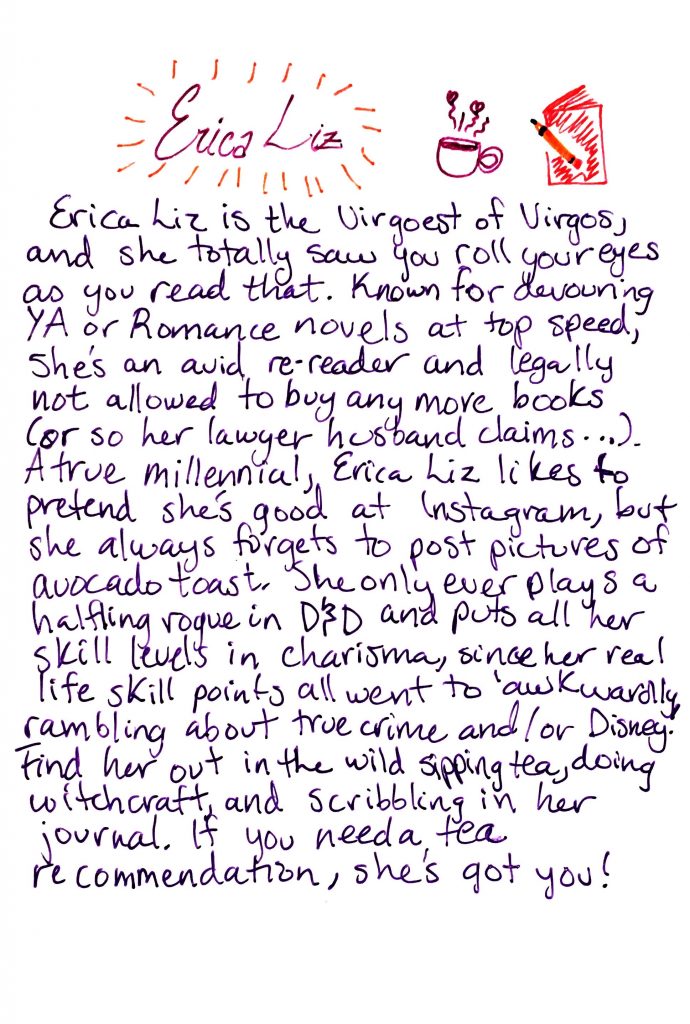 Erica Liz
Erica Liz is the Virgoest of Virgos,
and she totally saw you roll your eyes
as you read that. Known for devouring
YA or Romance novels at top speed,
she's an avid re-reader and legally
not allowed to buy any more books
(or so her lawyer husband claims...).
A true millennial, Erica Liz likes to
pretend she's good at Instagram, but
she always forgets to post pictures of
avocado toast. She only ever plays a
halfling rogue in D&D and puts all her
skill levels in charisma, since her real
life skill points all went to 'awkwardly
rambling about true crime and/or Disney.'
Find her out in the wild sipping tea, doing
witchcraft, and scribbling in her
journal. If you need a tea
recommendation, she's got you!